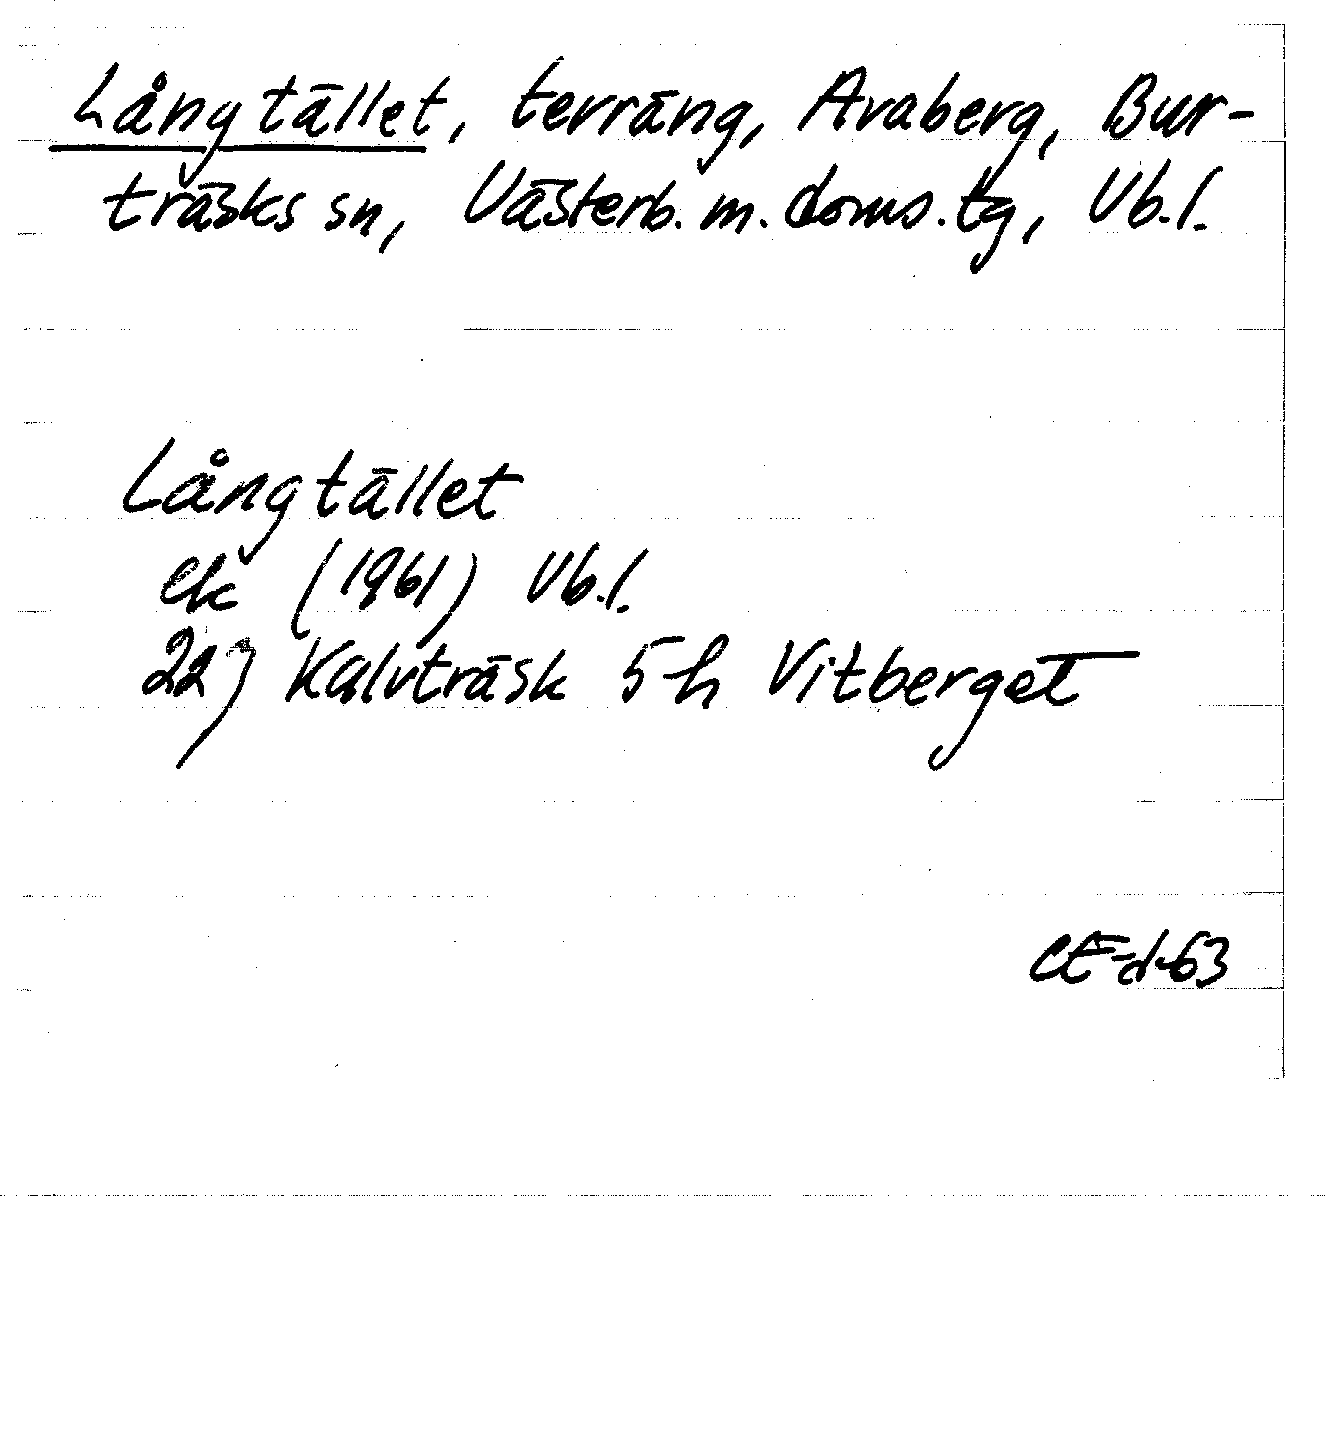 Långtället, terräng, Avaberg, Bur-
träsks sn, Västerb. m. doms. tg, Vb. l.
Långtället
ek (1961) Vb. l.
22J Kalvträsk 5 h Vitberget
CE-d-63